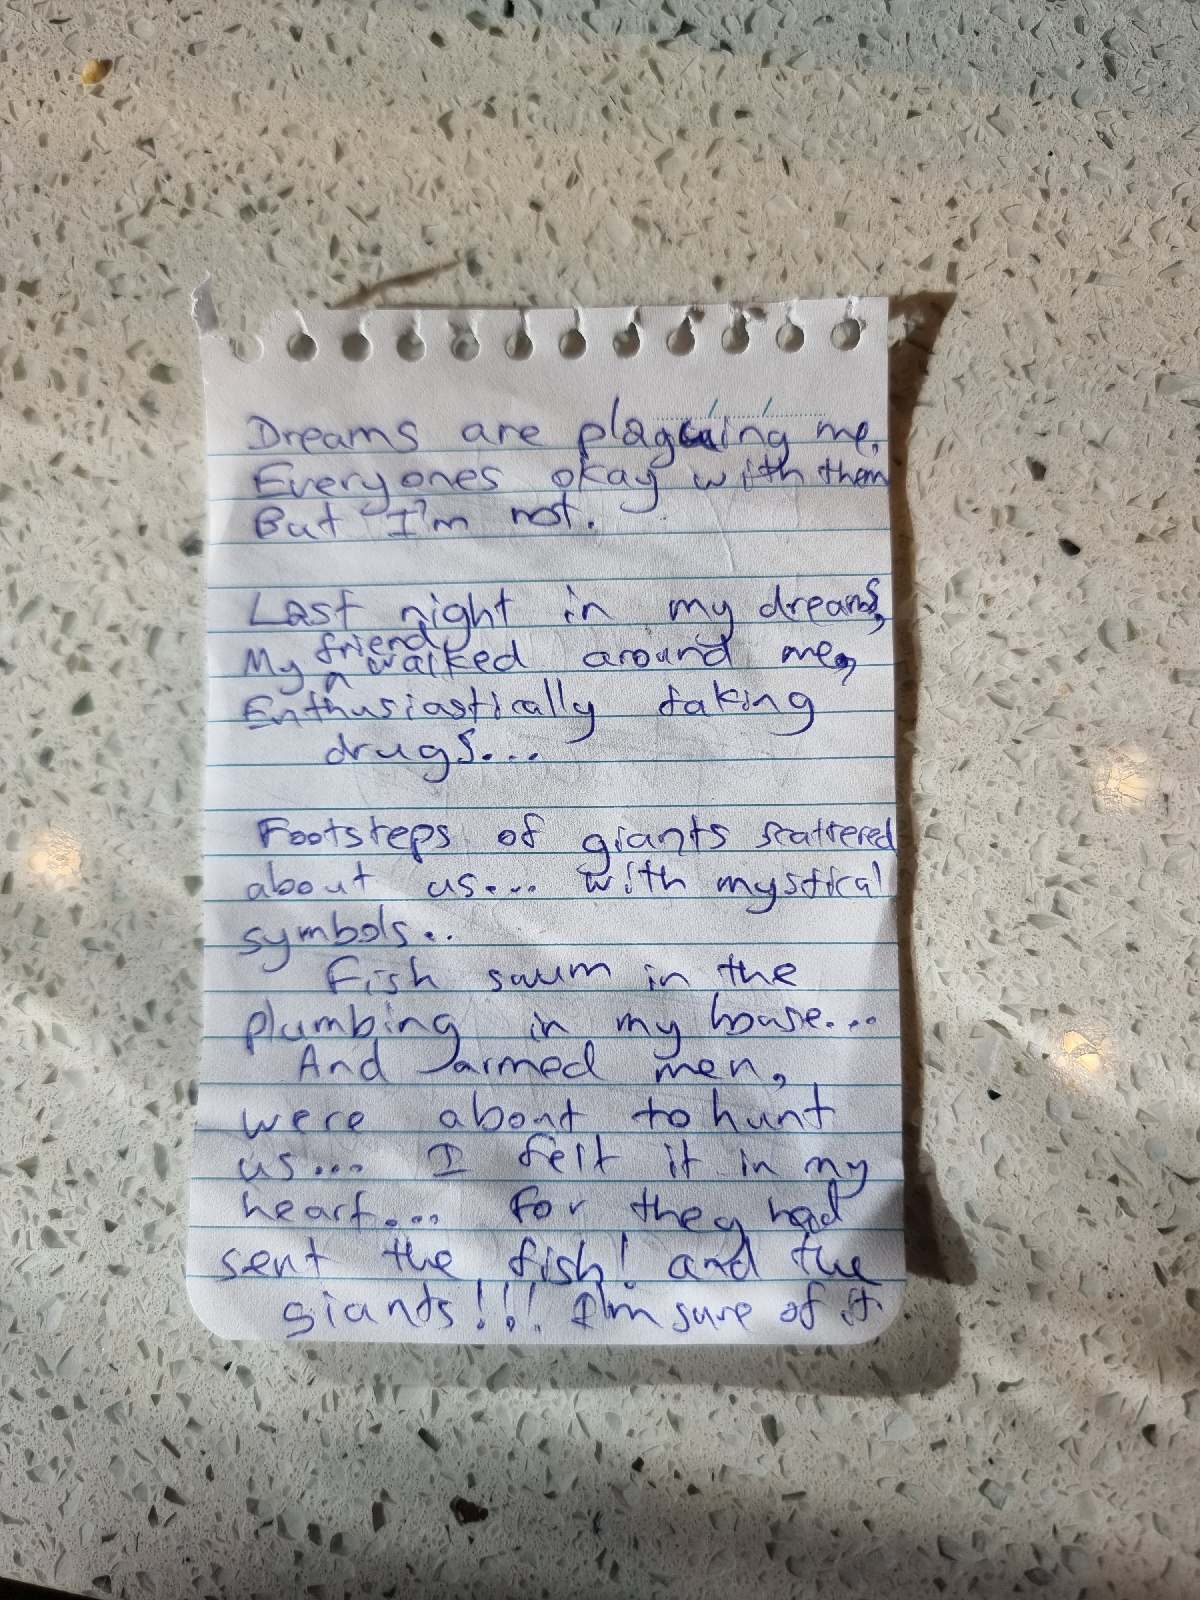 Dreams are plaguing me.
Everyones okay with them
But I'm not.
Last night in my dreams,
My friend walked around me,
Enthusiastically taking
drugs...
Footsteps of giants scattered
about us... with mystical
symbols..
Fish swum in the
plumbing in my house...
And armed men,
were about to hunt
us... I felt it in my
heart... for they had
sent the fish! and the
giants!!! I'm sure of it.